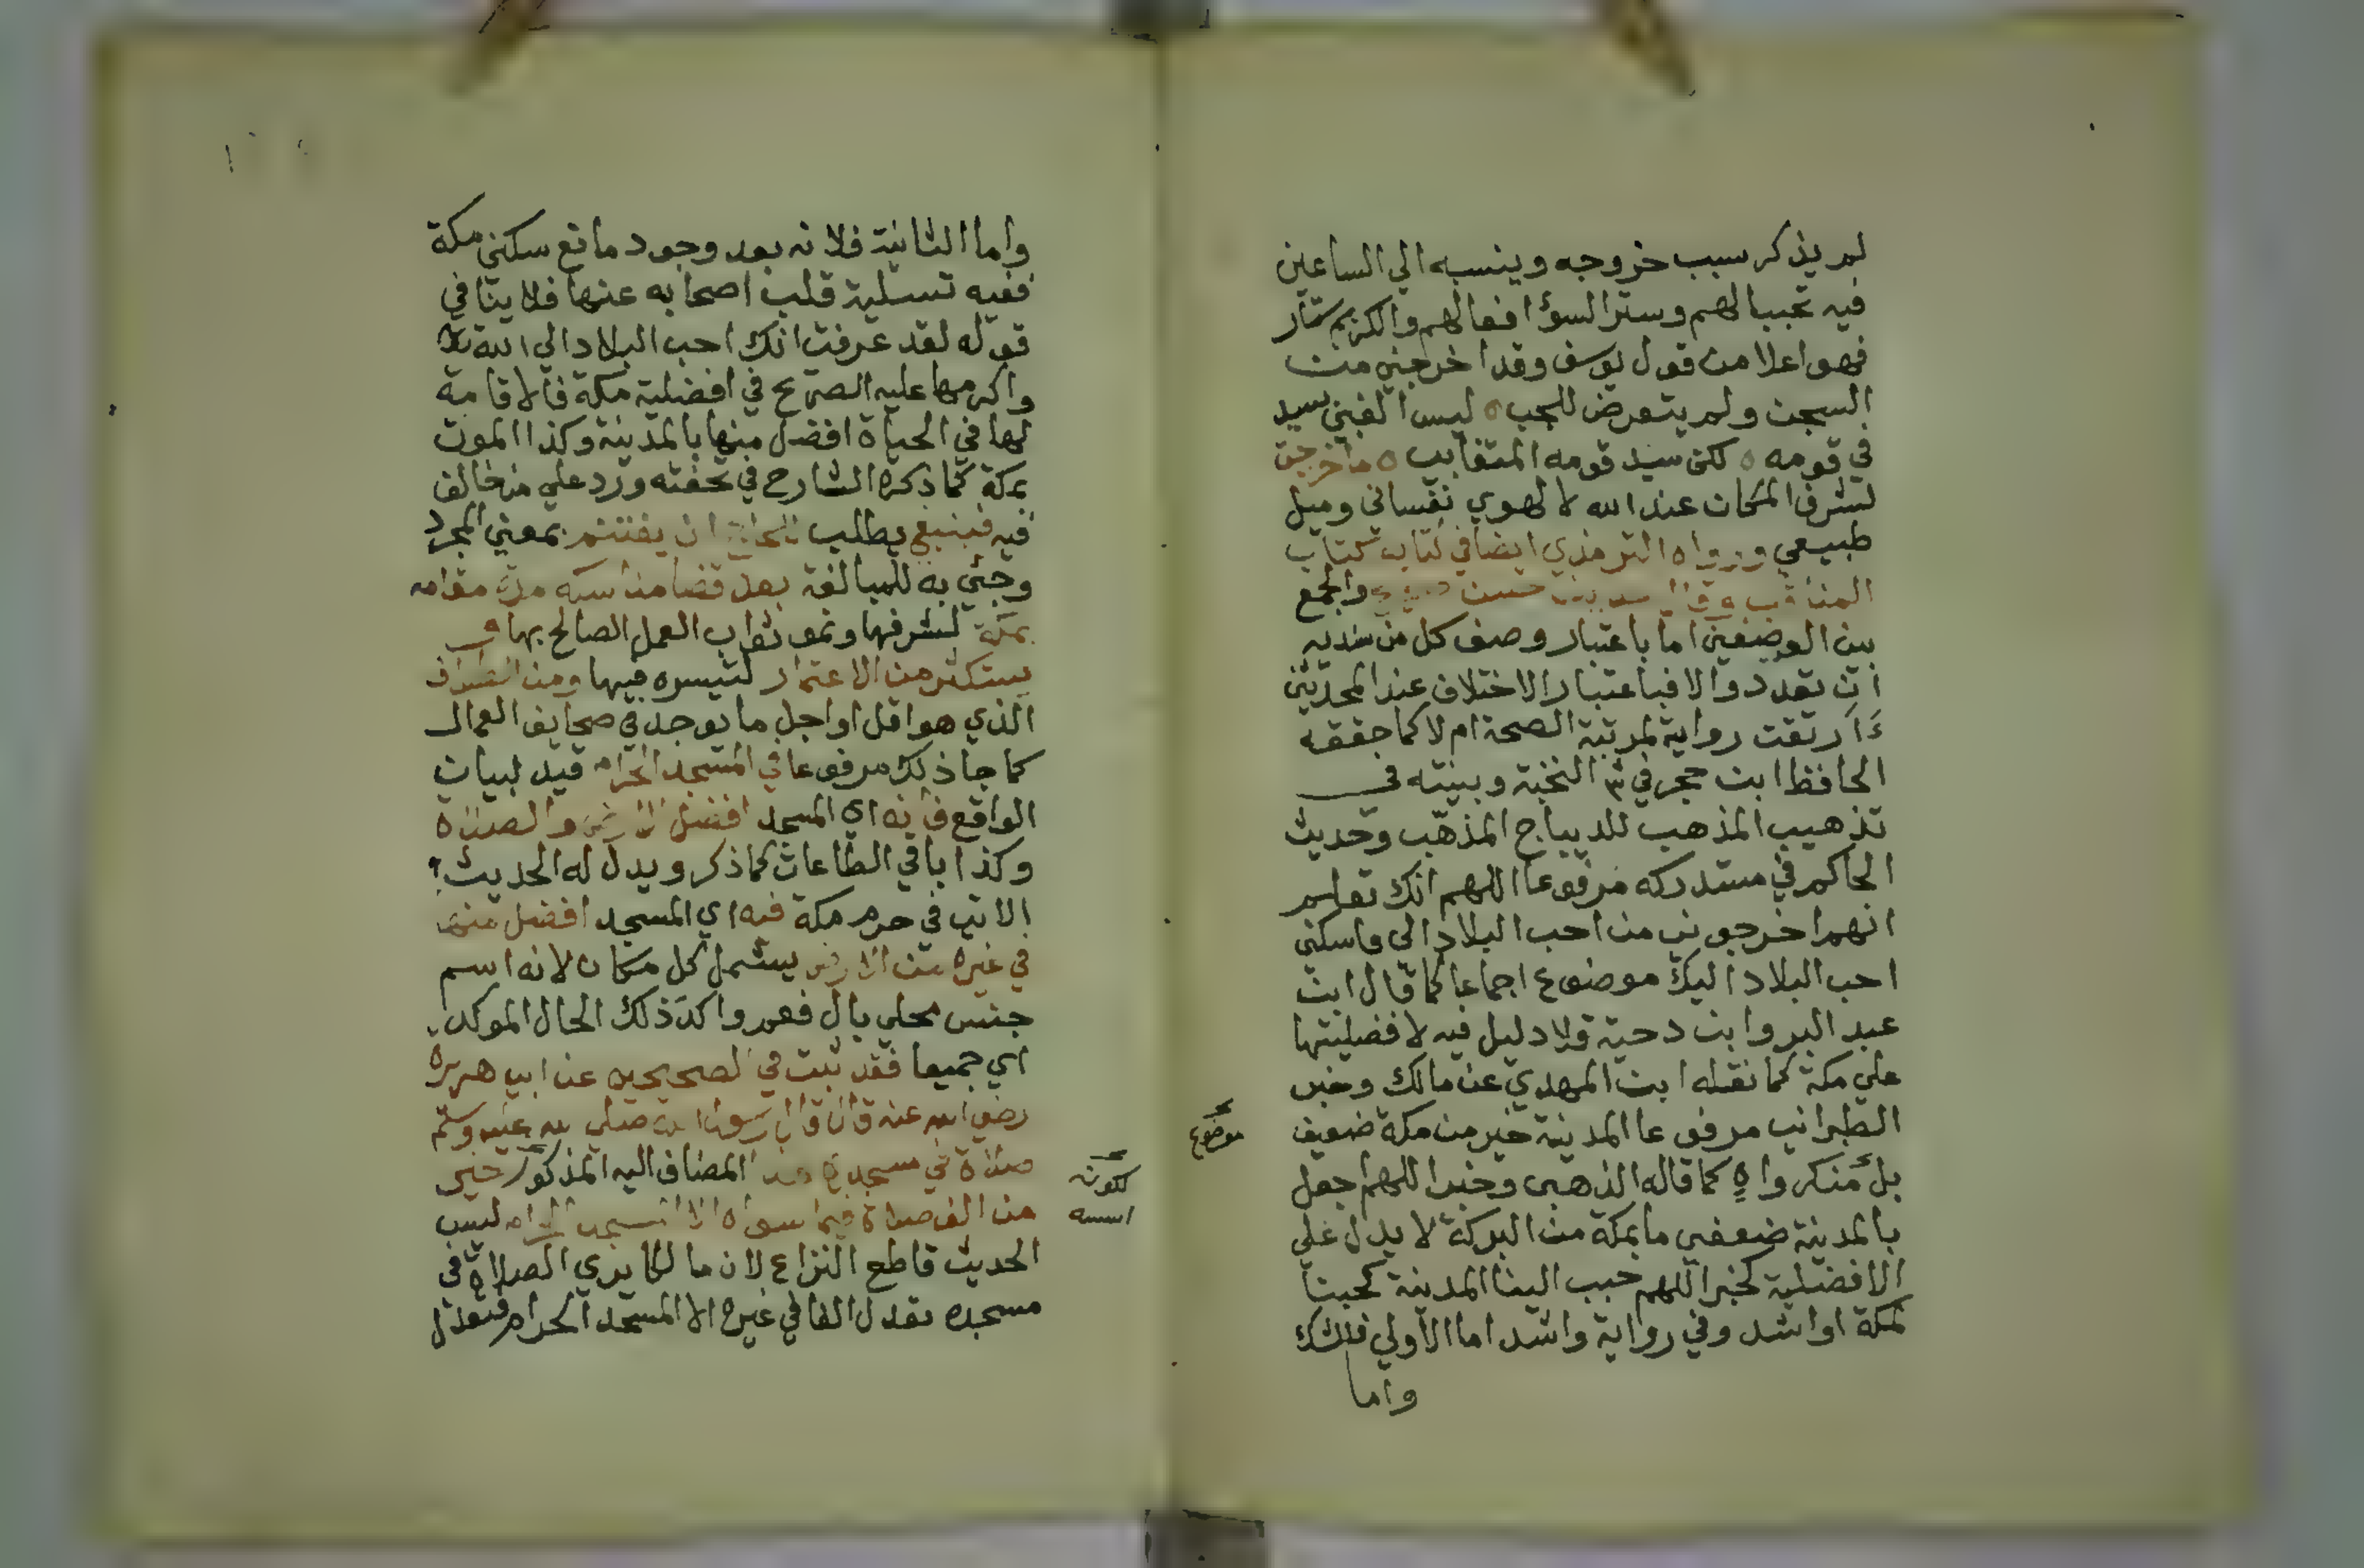 لم يذكر سبب خروجه وينسبه الي الساعين
فيه تحببا لهم وسترا لسؤ افعالهم والكريم ستار
فهو اعلا من قول يوسف وقد اخرجني من
السجن ولم يتعرض للجب ه ليس الغبي سيد
في قومه ه لكن سيد قومه المتغابي ه ما خرجت
لشرف المكان عند الله لا لهوي نفساني وميل
طبيعي ورواه الترمذي ايضا في كتاب
المناقب وقال حديث حسن والجمع
بين الوصفين اما باعتبار وصف كل من سنديه
ان تعدد والا فباعتبار الاختلاف عند المحدثين
أارتقت رواية لمرتبة الصحة ام لا كما حققه
الحافظ ابن حجر في ش النخبة وبينته في
تذهيب المذهب للديباج المذهّب وحديث
الحاكم في مستدركه مرفوعا اللهم انك تعلم
انهم اخرجوني من احب البلاد الي فاسكني
احب البلاد اليك موضوع اجماعا كما قال ابن
عبد البر وابن دحية ولا دليل فيه لافضليتها
علي مكة كما نقله ابن المهدي عن مالك وخبر
الطبراني مرفوعا المدينة خير من مكة ضعيف
بل منكر واهٍ كما قاله الذهبي وخبر اللهم اجعل
بالمدينة ضعفي ما بمكة من البركة لا يدل علي
الافضلية كخبر اللهم حبب الينا المدينة كحبنا
لمكة او اشد وفي رواية واشد اما الاولي فلذلك
واما
موضوع
واما الثانية فلانه بعد وجود مانع سكني مكة
ففيه تسلية قلب اصحابه عنها فلا ينافي
قوله لقد عرفت انك احب البلاد الي الله
واكرمها عليه الصريح في افضلية مكة فالاقامة
لها في الحياة افضل منها بالمدينة وكذا الموت
بمكة كما ذكره الشارح في تحفته ورد علي من خالف
فيه فينبغي يطلب للحاج ان يغتنم بمعني المجرد
وجئ به للمبالغة بعد قضا مناسكه مدة مقامه
بمكة لشرفها ونمو ثواب العمل الصالح بها و
يستكثر من الاعتمار لتيسره فيها ومن الطواف
الذي هو اقل او اجل ما يوجد في صحايف العمال
كما جا ذلك مرفوعا في المسجد الحرام قيد لبيان
الواقع فانه اي المسجد افضل الارض والصلاة
وكذا باقي الطاعات كما ذكر ويدل له الحديث
الاتي في حرم مكة فيه اي المسجد افضل منها
في غيره من الارض يشمل كل مكان لانه اسم
جنس محلي بال فعم واكد ذلك الحال الموكد
اي جميعا فقد ثبت في الصحيحين عن ابي هريرة
رضي الله عنه قال قال رسول الله صلي الله عليه وسلم
صلاة في مسجدي هذا المضاف اليه المذكور خير
من الف صلاة فيما سواه الا المسجد الحرام ليس
الحديث قاطع النزاع لان مالكا يري الصلاة في
مسجده تعدل الفا في غيره الا المسجد الحرام فتعدل
لكونه
اسسه